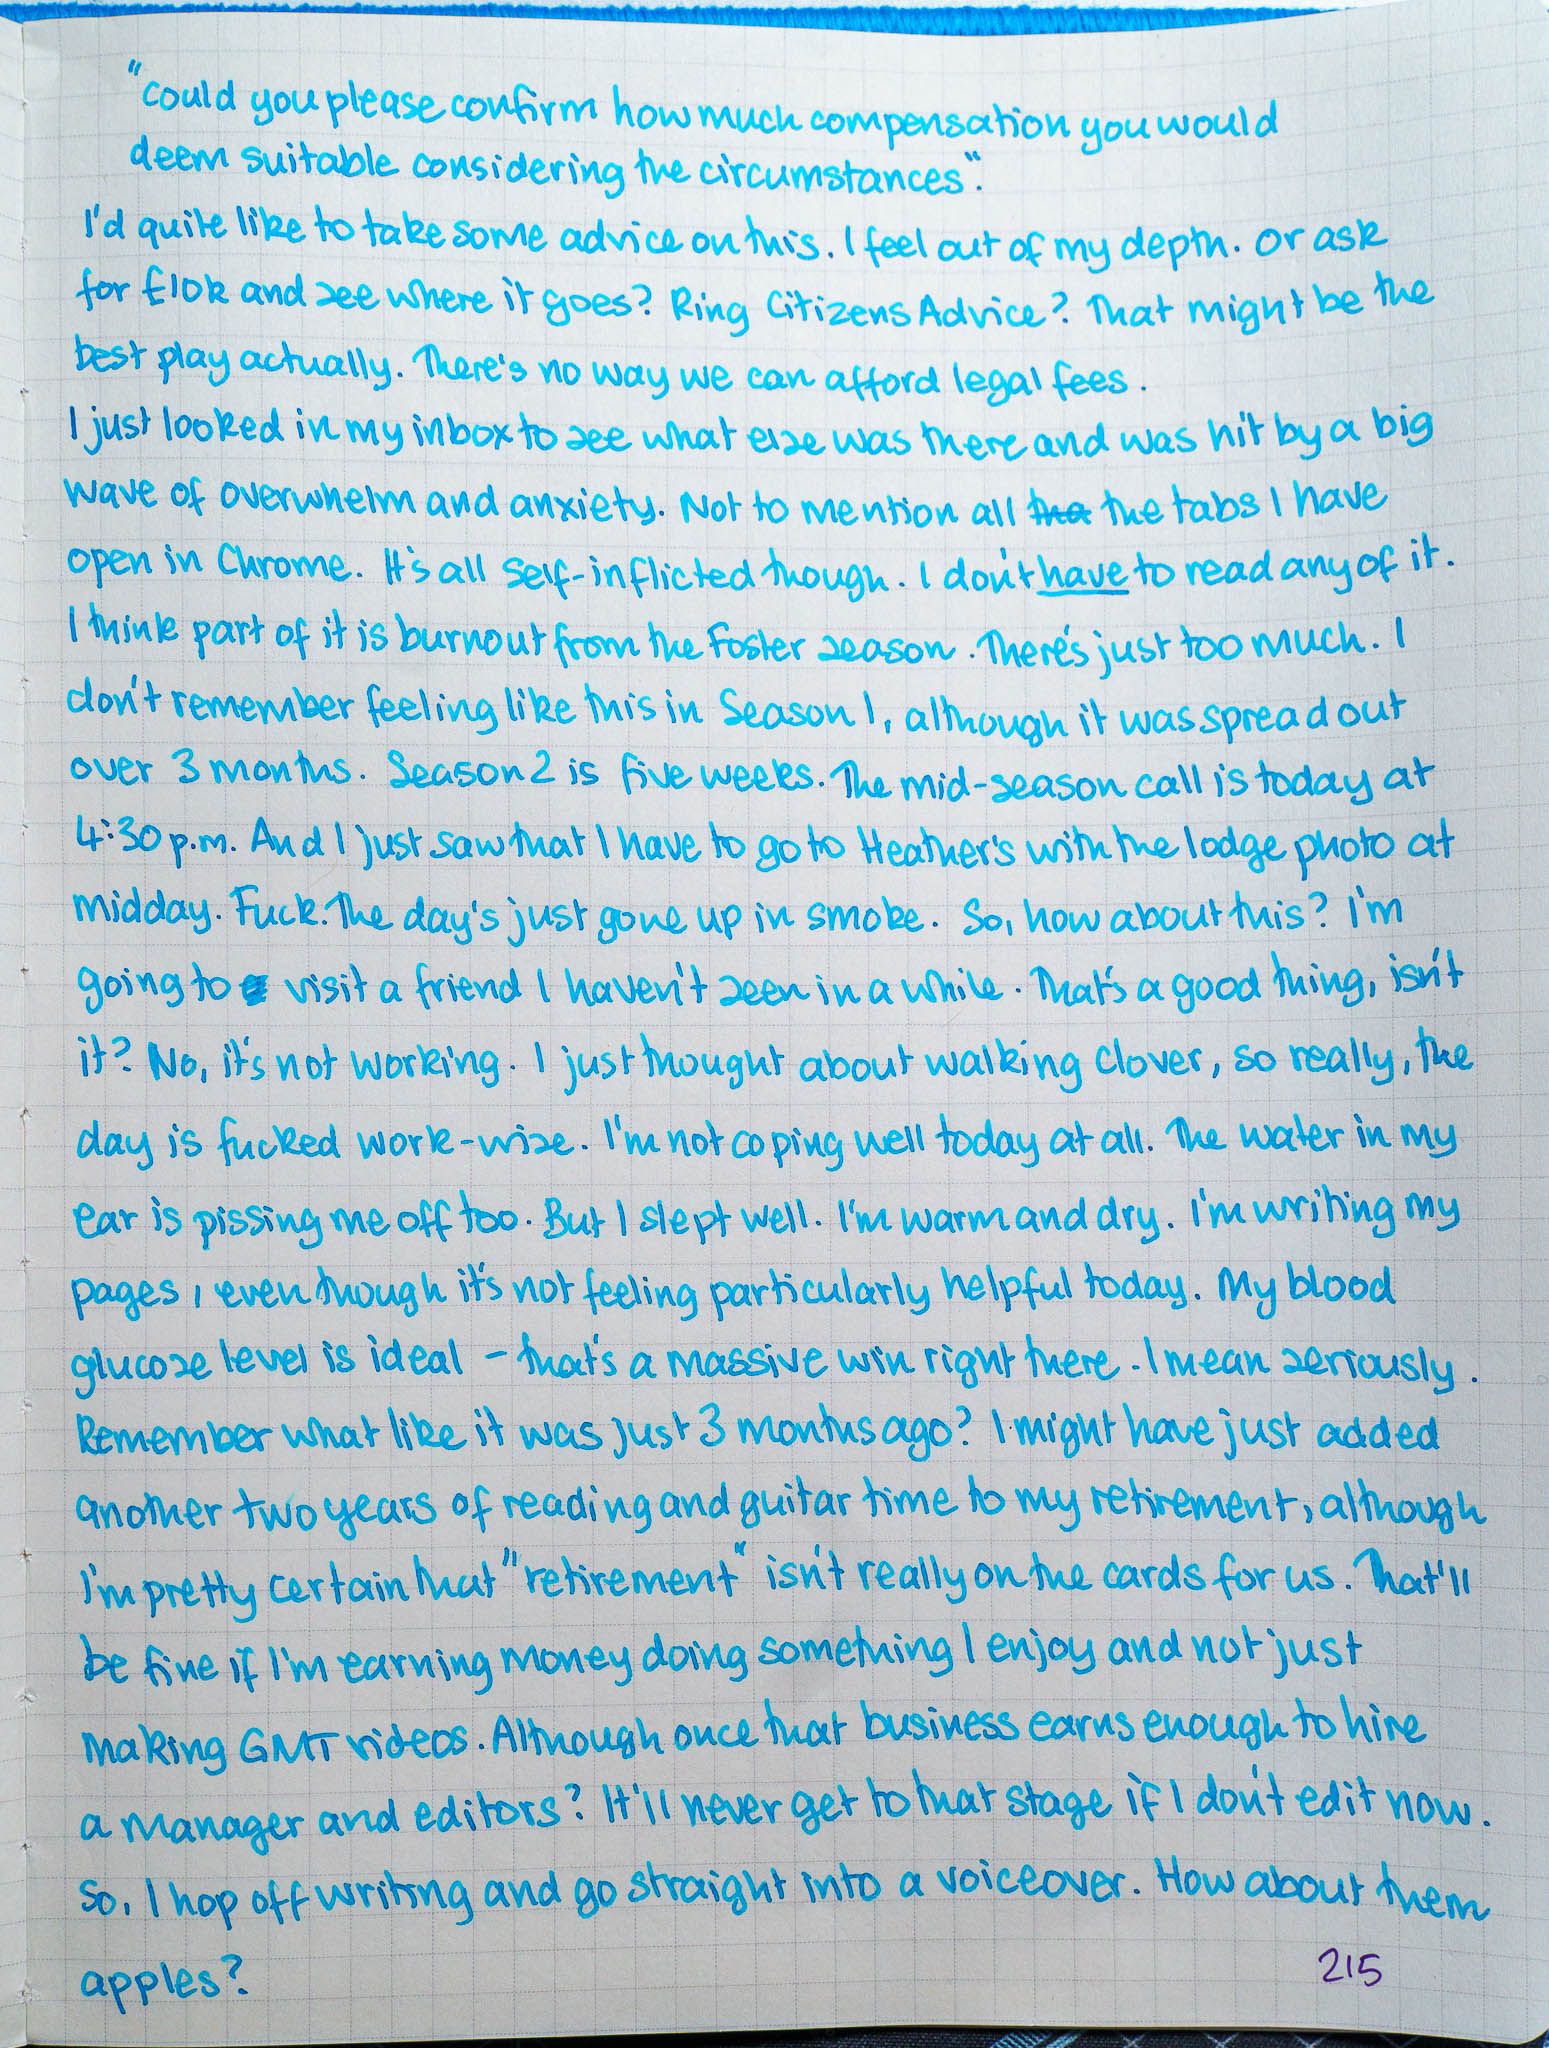 "Could you please confirm how much compensation you would
deem suitable considering the circumstances".
I'd quite like to take some advice on this. I feel out of my depth. Or ask
for £10k and see where it goes? Ring Citizens Advice? That might be the
best play actually. There's no way we can afford legal fees.
I just looked in my inbox to see what else was there and was hit by a big
wave of overwhelm and anxiety. Not to mention all tha the tabs I have
open in Chrome. It's all self-inflicted though. I don't have to read any of it.
I think part of it is burnout from the Foster season. There's just too much. I
don't remember feeling like this in Season 1, although it was spread out
over 3 months. Season 2 is five weeks. The mid-season call is today at
4:30 p.m. And I just saw that I have to go to Heather's with the lodge photo at
midday. Fuck. The day's just gone up in smoke. So, how about this? I'm
going to visit a friend I haven't seen in a while. That's a good thing, isn't
it? No, it's not working. I just thought about walking Clover, so really, the
day is fucked work-wise. I'm not coping well today at all. The water in my
ear is pissing me off too. But I slept well. I'm warm and dry. I'm writing my
pages, even though it's not feeling particularly helpful today. My blood
glucose level is ideal - that's a massive win right there. I mean seriously.
Remember what like it was just 3 months ago? I might have just added
another two years of reading and guitar time to my retirement, although
I'm pretty certain that "retirement" isn't really on the cards for us. That'll
be fine if I'm earning money doing something I enjoy and not just
making GMT videos. Although once that business earns enough to hire
a manager and editors? It'll never get to that stage if I don't edit now.
So, I hop off writing and go straight into a voiceover. How about them
apples?
215